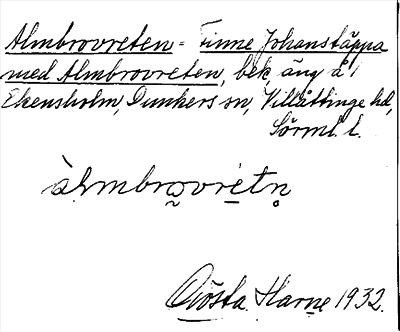 Almbrovreten = Finne Johanstäppa
med Almbrovreten, bek, äng å i
Ekensholm, Dunkers sn, Villåttinge hd,
Sörml. l.
àlmbro̰vrétn̥
Gösta Harne 1932.